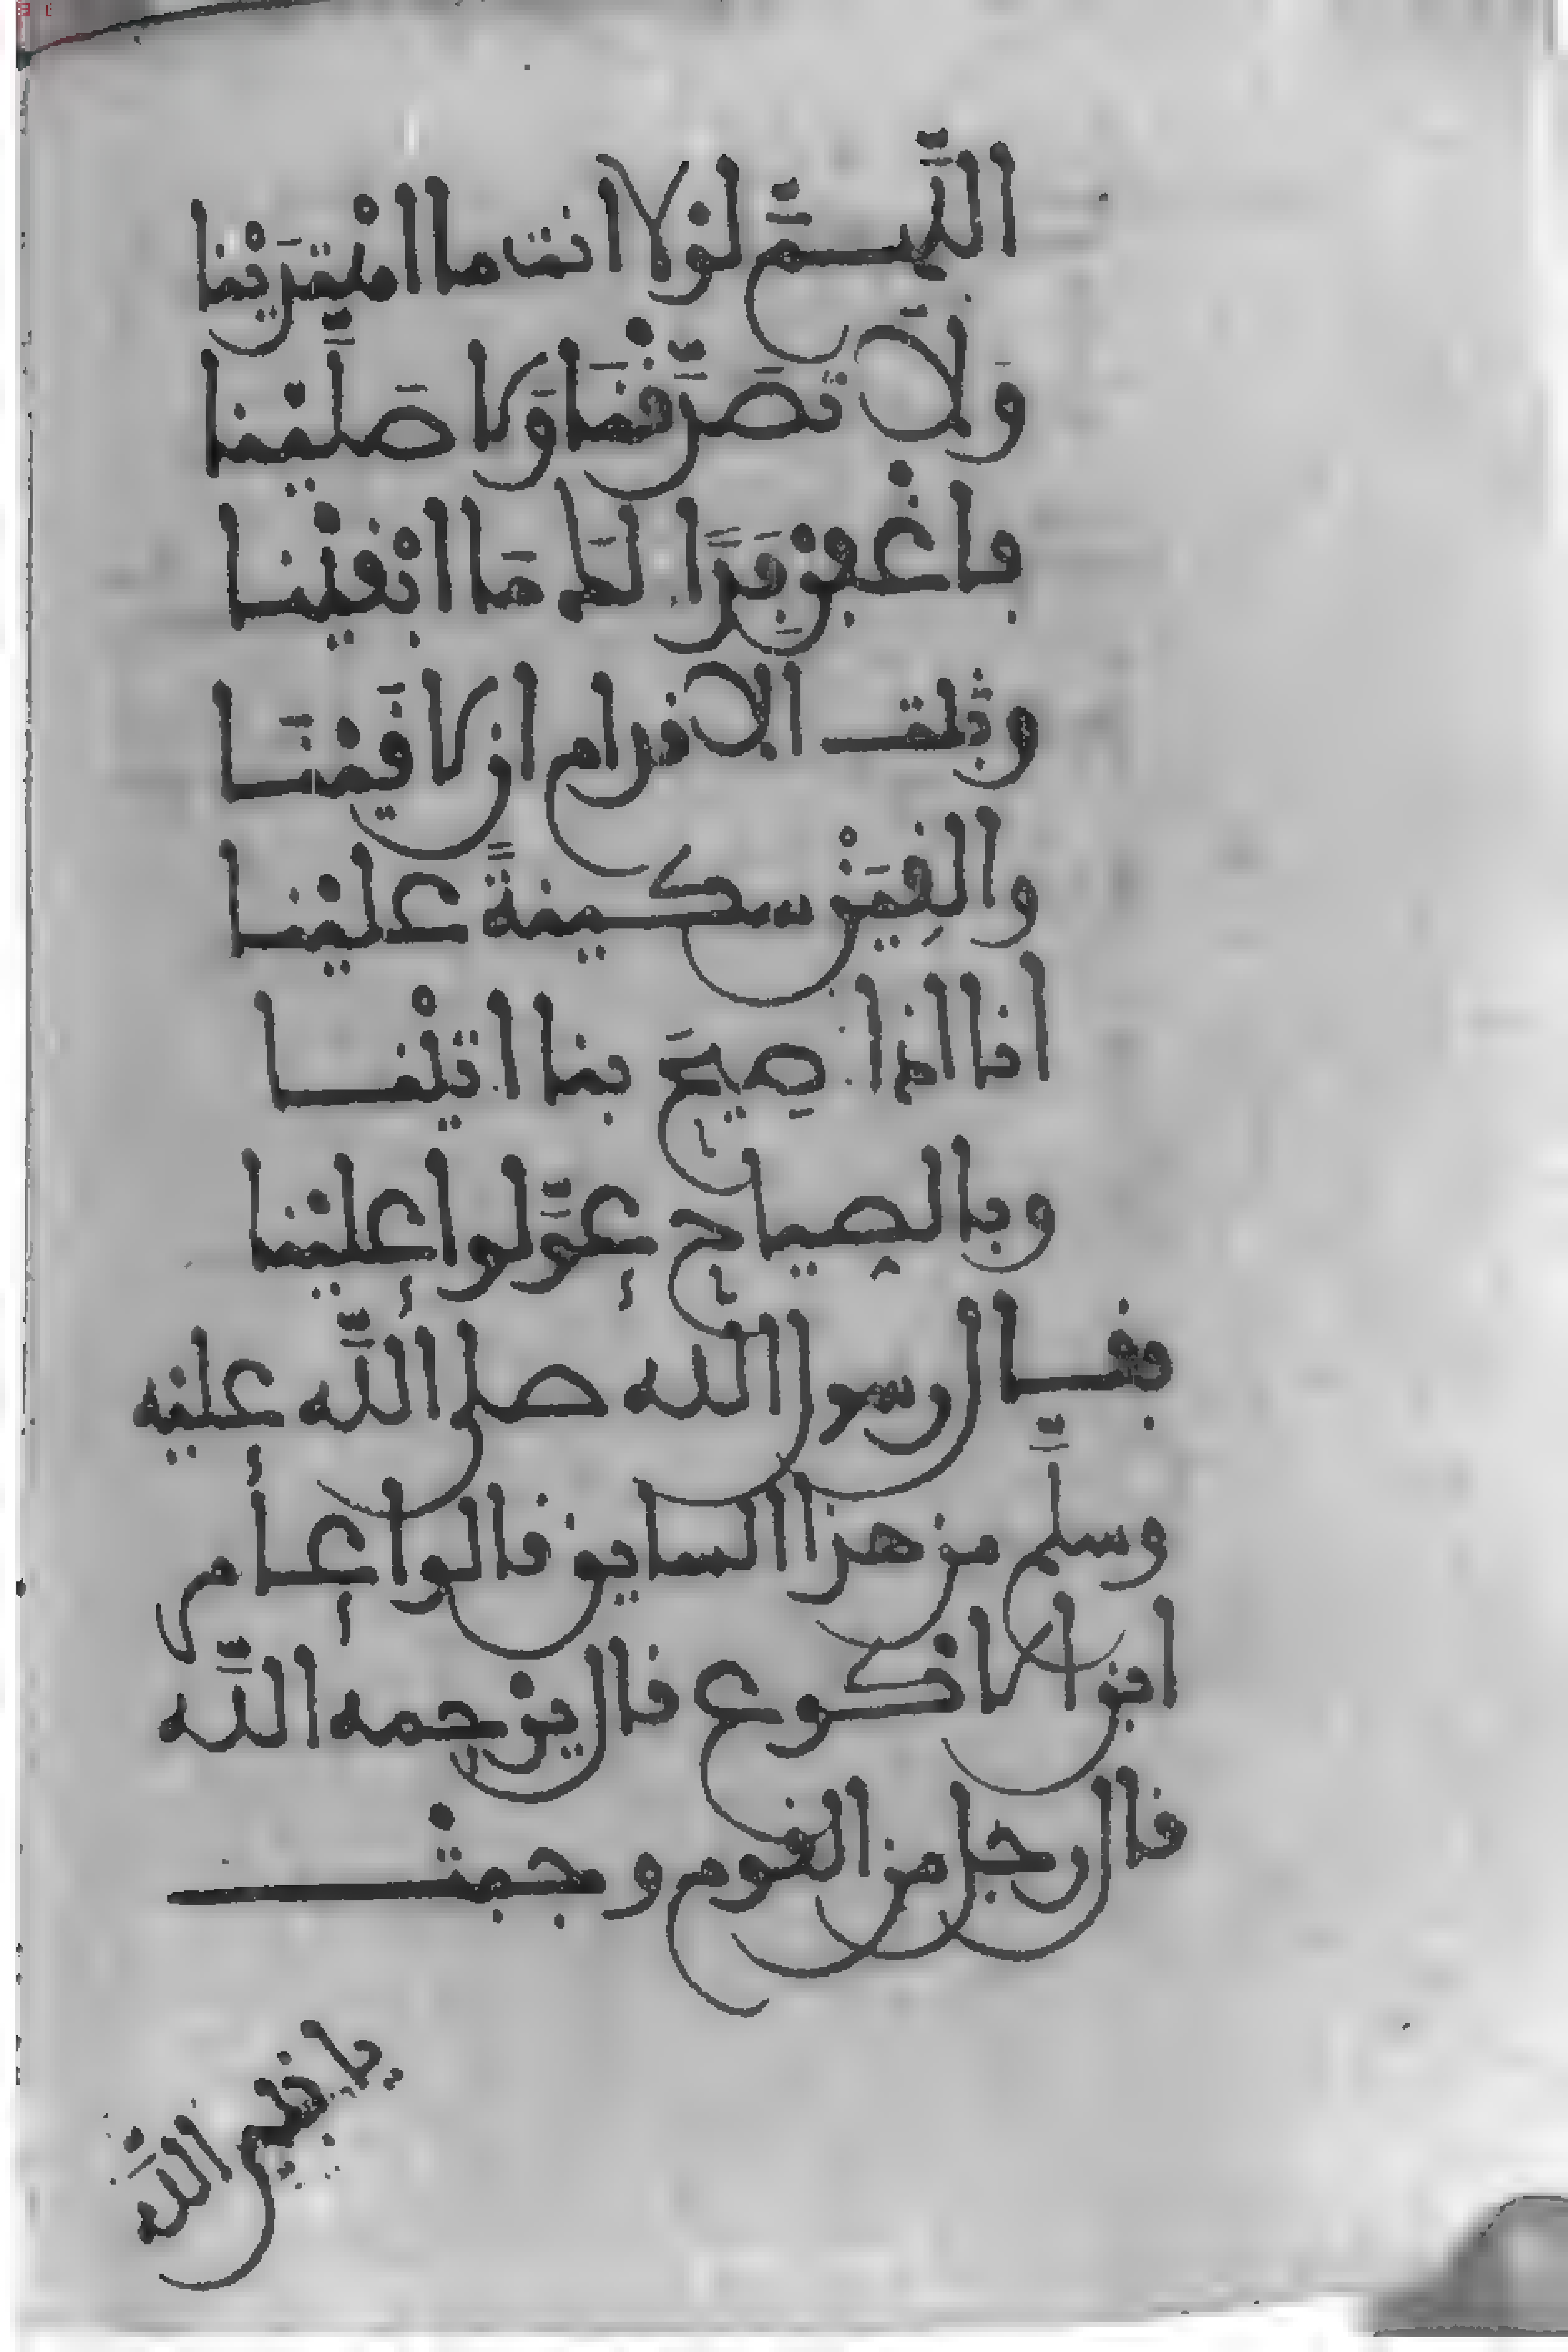 اللَّهمَّ لوْلا انت ما اهْتدَيْنا
وَلَا تصَدَّقْنَا وَلا صَلَّيْنا
فاغْفرْ فِدًا لَك مَا ابْقيْنا
وثبت الاقدام ان لاقَيْنَا
والقِيَنْ سكينةً عليْنا
انا اذا صِيحَ بنا اتيْنا
وبالصِياح عوَّلوا علينا
فقال رسول الله صلى اللَّه عليه
وسلَّم من هذا السايق قالوا عامر
ابن الاكوع قال يرْحمه اللَّه
قال رجل من القوم وجبتْ
يا نبي اللَّه